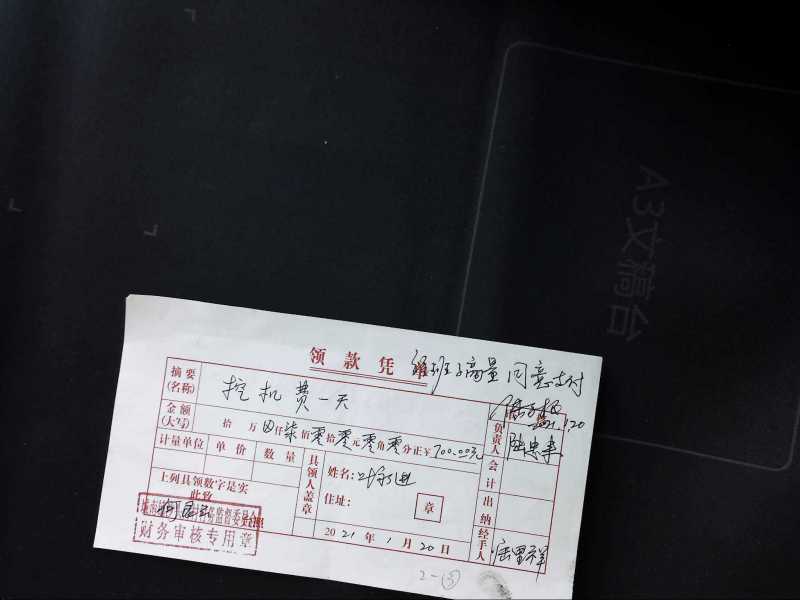 A3文稿台
领款凭单
经班子商量同意支付
摘要(名称)
挖机费一天
金额(大写)
拾万 仟柒佰零拾零元零角零分正¥700.00元
2021.1.20
负责人
计量单位 单价 数量
会计
上列具领数字是实
此致
具领人盖章
姓名:
住址:
章
出纳
财务审核专用章
2021年1月20日
经手人
2-③